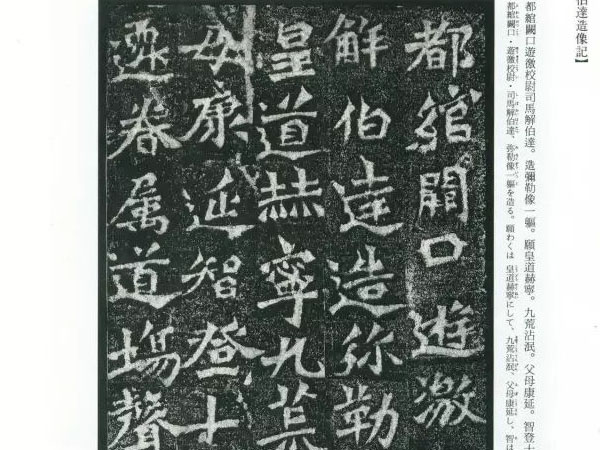 伯達造像記】
都綰闕口遊激校尉司馬解伯達。造彌勒像一軀。願皇道赫寧。九荒沾泯。父母康延。智登十
都綰闕口・遊激校尉・司馬解伯達、弥勒像一軀を造る。願わくは 皇道赫寧にして、九荒沾泯、父母康延し、智は
都綰闕口遊激
解伯達造弥勒
皇道赫寧九荒
母康延智登十
眷属道場聲